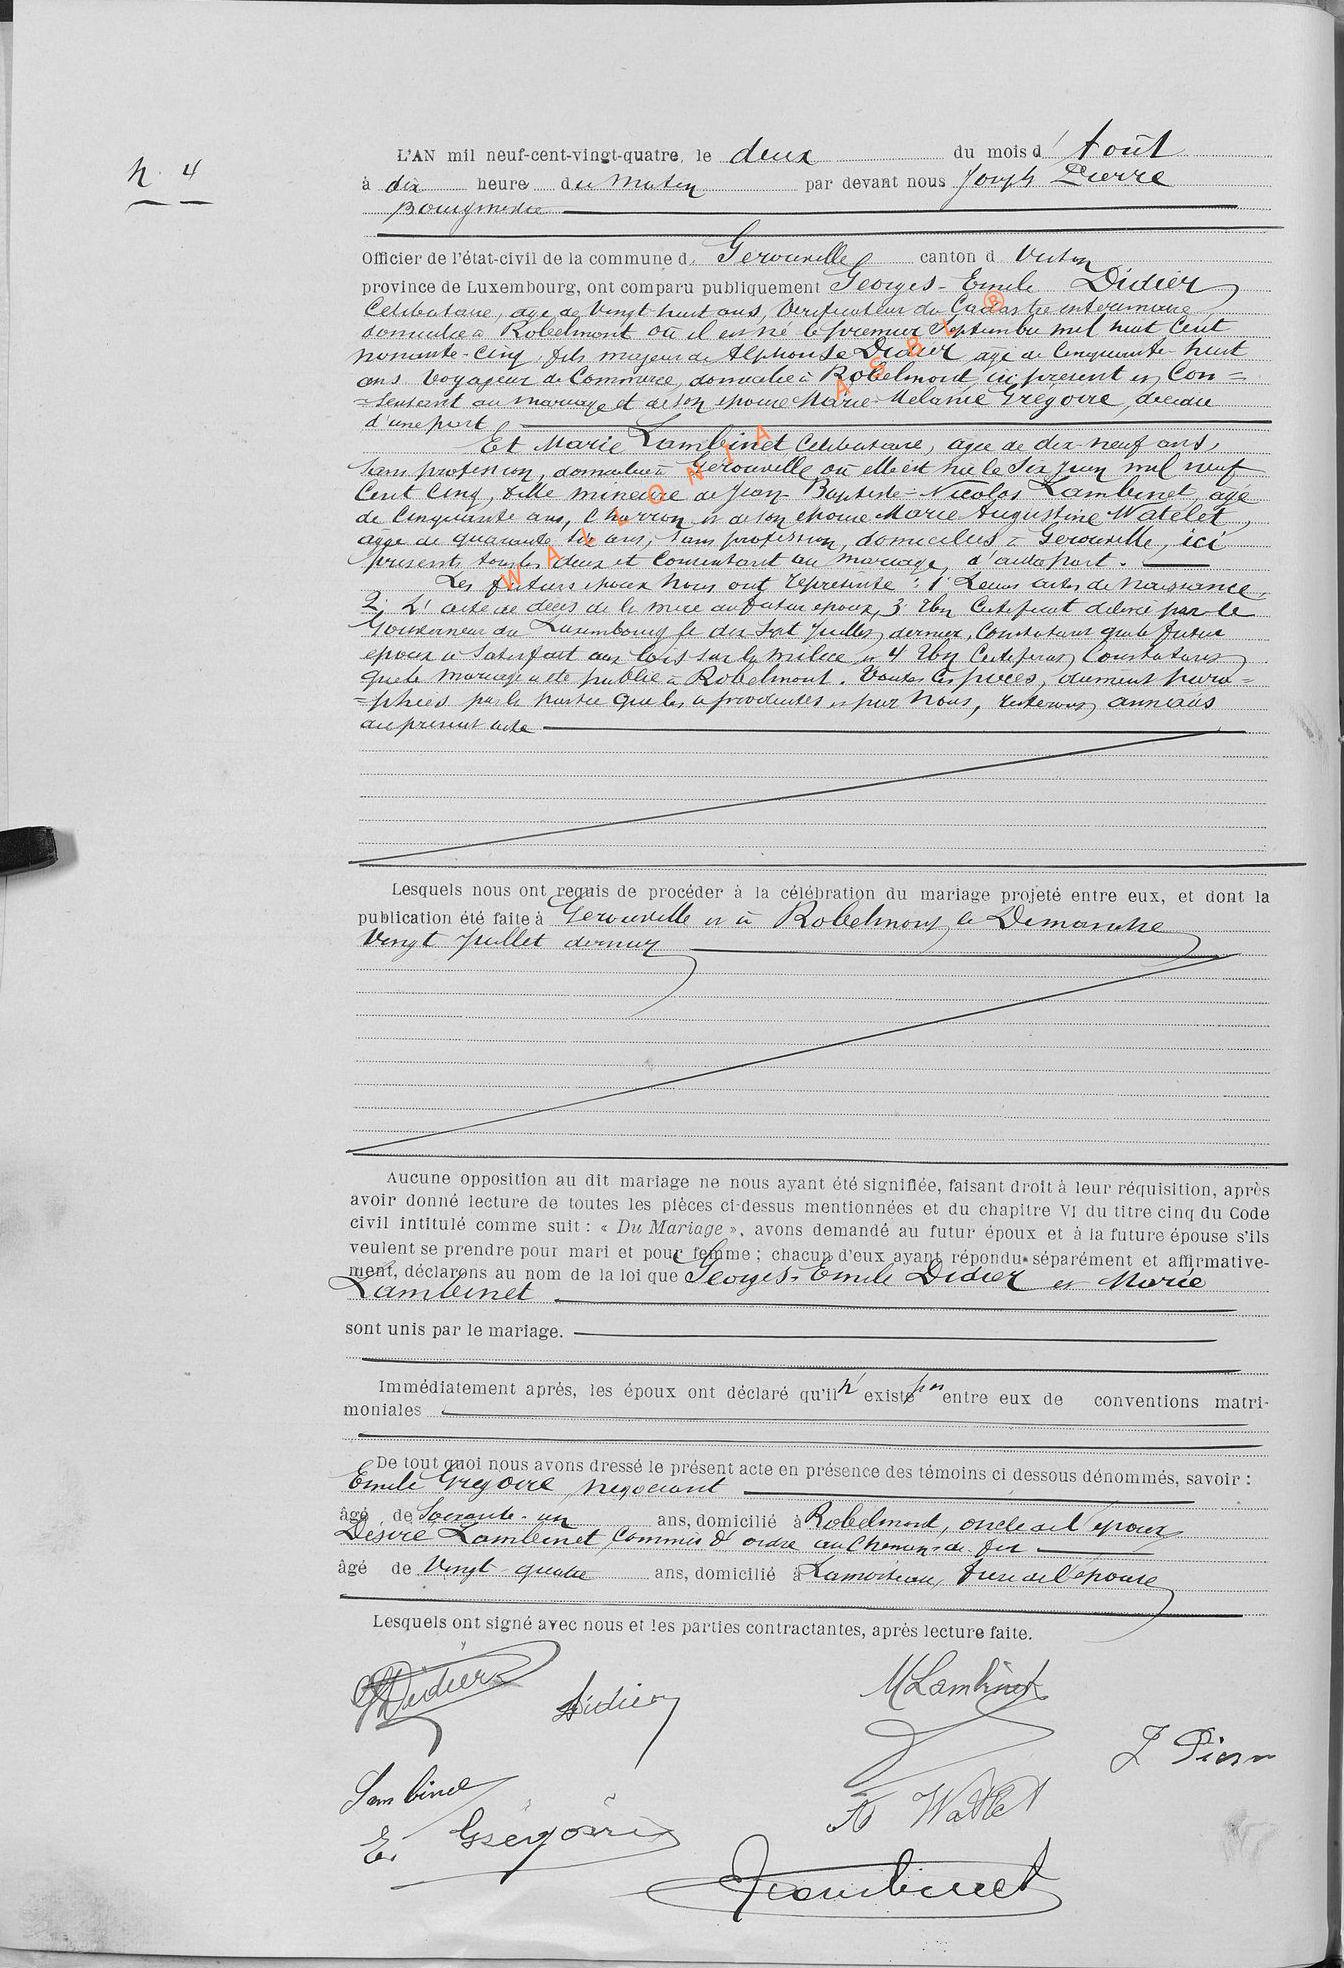 N. 4
L'AN mil neuf-cent-vingt-quatre, le deux du mois d'Août
à dix heure du Matin par devant nous Joseph Pierre
Bourgmestre
Officier de l'état-civil de la commune d Gerouville canton d Virton
province de Luxembourg, ont comparu publiquement Georges-Emile Didier
Célibataire, âgé de Vingt-huit ans, Vérificateur du Cadastre intérimaire
domicilié à Robelmont où il est né le premier Septembre mil huit Cent
nonante-cinq, fils majeur de Alphonse Didier âgé de Cinquante-huit
ans Voyageur de Commerce, domicilié à Robelmont ici présent et Con=
=sentant au mariage et de son épouse Marie-Mélanie Grégoire, décédée
d'une part
Et Marie Lambinet Célibataire, âgée de dix-neuf ans,
Sans profession, domiciliée à Gerouville où elle est née le Six juin mil neuf
Cent Cinq, fille mineure de Jean-Baptiste-Nicolas Lambinet, âgé
de Cinquante ans, Charron et de son épouse Marie Augustine Watelet,
âgée de quarante six ans, Sans profession, domiciliés à Gerouville, ici
présents tous les deux et Consentant au mariage, d'autre part.
Les futurs époux Nous ont représenté : 1° Leurs actes de Naissance,
2° L'acte de décès de la mère du futur époux, 3° Un Certificat délivré par le
Gouverneur du Luxembourg le dix-Sept Juillet dernier, Constatant que le futur
époux a Satisfait aux lois sur la milice, et 4° Un Certificat Constatant
que le mariage a été publié à Robelmont. Toutes les pièces, dûment para=
=phées par la partie qui les a produites et par Nous, resteront annexées
au présent acte
Lesquels nous ont requis de procéder à la célébration du mariage projeté entre eux, et dont la
publication été faite à Gerouville et à Robelmont le Dimanche
Vingt Juillet dernier
Aucune opposition au dit mariage ne nous ayant été signifiée, faisant droit à leur réquisition, après
avoir donné lecture de toutes les pièces ci-dessus mentionnées et du chapitre VI du titre cinq du Code
civil intitulé comme suit : « Du Mariage », avons demandé au futur époux et à la future épouse s'ils
veulent se prendre pour mari et pour femme ; chacun d'eux ayant répondu séparément et affirmative-
ment, déclarons au nom de la loi que Georges-Emile Didier et Marie
Lambinet
sont unis par le mariage.
Immédiatement après, les époux ont déclaré qu'il n'existe pas entre eux de conventions matri-
moniales
De tout quoi nous avons dressé le présent acte en présence des témoins ci dessous dénommés, savoir :
Emile Grégoire, négociant
âgé de Soixante-un ans, domicilié à Robelmont, oncle de l'époux
Désiré Lambinet, Commis d'ordre au Chemin de fer
âgé de Vingt-quatre ans, domicilié à Lamorteau, frère de l'épouse
Lesquels ont signé avec nous et les parties contractantes, après lecture faite.
Didier
Didier
M Lambinet
J Pierre
Lambinet
A Watlet
E. Grégoire
Lambinet
WALLONIA ASBL ®